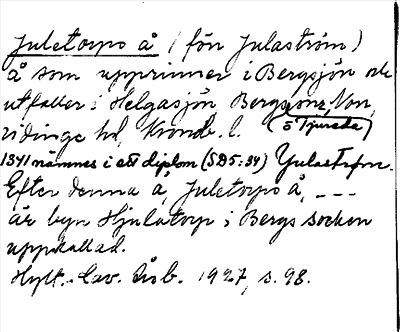 Juletorps å (förr Julaström)
å som upprinner i Bergsjön och
utfaller i Helgasjön Bergs sn, Nor,
vidinge hd, Kronb. l. (o Tjureda)
1341 nämnes i ett diplom (SD5:34) Yulastrøm.
Efter denna å, Juletorps å, ---
är byn Hjulatorp i Bergs socken
uppkallad.
Hylt.-Cav. Årsb. 1927, s. 98.